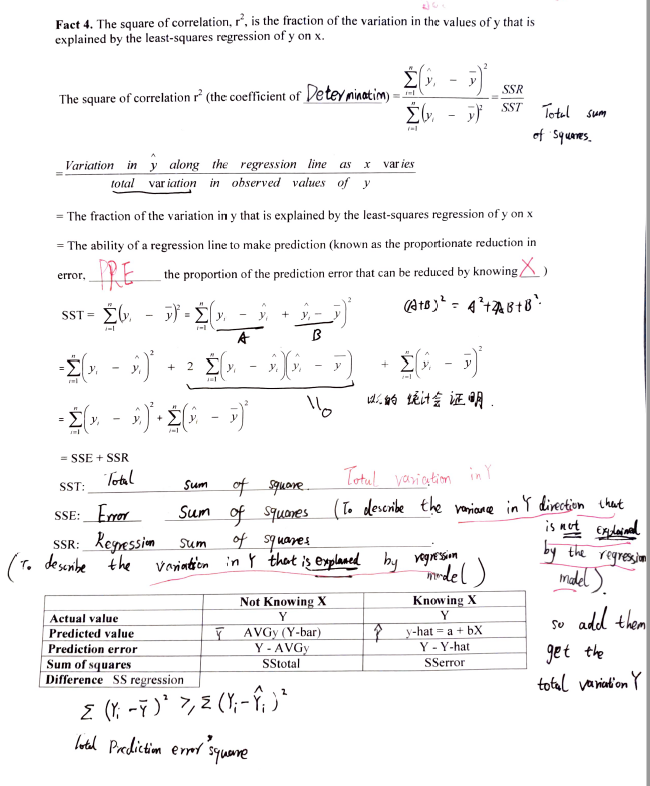 Fact 4. The square of correlation, r², is the fraction of the variation in the values of y that is
explained by the least-squares regression of y on x.
The square of correlation r² (the coefficient of Determination) = Σ(ŷᵢ − ȳ)² / Σ(yᵢ − ȳ)² = SSR / SST
Total sum
of squares.
= Variation in ŷ along the regression line as x varies
total variation in observed values of y
= The fraction of the variation in y that is explained by the least-squares regression of y on x
= The ability of a regression line to make prediction (known as the proportionate reduction in
error, PRE the proportion of the prediction error that can be reduced by knowing X )
SST = Σ(yᵢ − ȳ)² = Σ(yᵢ − ŷᵢ + ŷᵢ − ȳ)²
(A+B)² = A²+2AB+B².
A B
= Σ(yᵢ − ŷᵢ)² + 2 Σ(yᵢ − ŷᵢ)(ŷᵢ − ȳ) + Σ(ŷᵢ − ȳ)²
= Σ(yᵢ − ŷᵢ)² + Σ(ŷᵢ − ȳ)²
0
统计会证明.
= SSE + SSR
SST: Total sum of square. Total variation in Y
SSE: Error sum of squares (To describe the variance in Y direction that
is not explained
by the regression
model).
SSR: Regression sum of squares
(To describe the variation in Y that is explained by regression
model)
Not Knowing X Knowing X
Actual value Y Y
Predicted value Ȳ AVGy (Y-bar) Ŷ y-hat = a + bX
Prediction error Y - AVGy Y - Y-hat
Sum of squares SStotal SSerror
Difference SS regression
so add them
get the
total variation Y
Σ (Yᵢ - Ȳ)² ≥ Σ (Yᵢ - Ŷᵢ)²
total Prediction error square